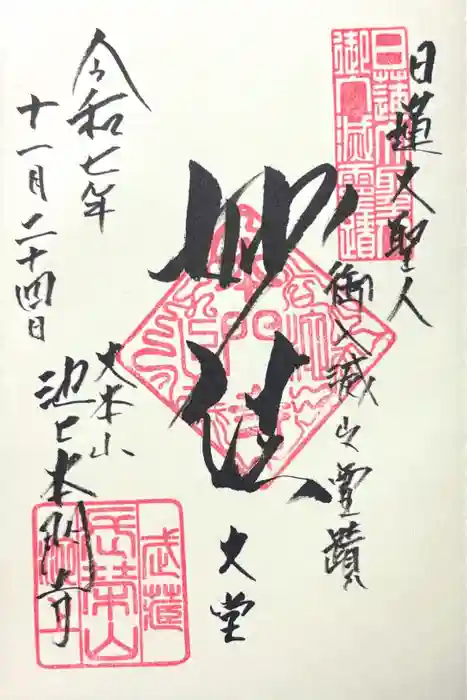 日蓮大聖人
御入滅之霊蹟
妙法
大堂
大本山
池上本門寺
令和七年
十一月二十四日
御入滅靈蹟
武蔵
長榮山
池上